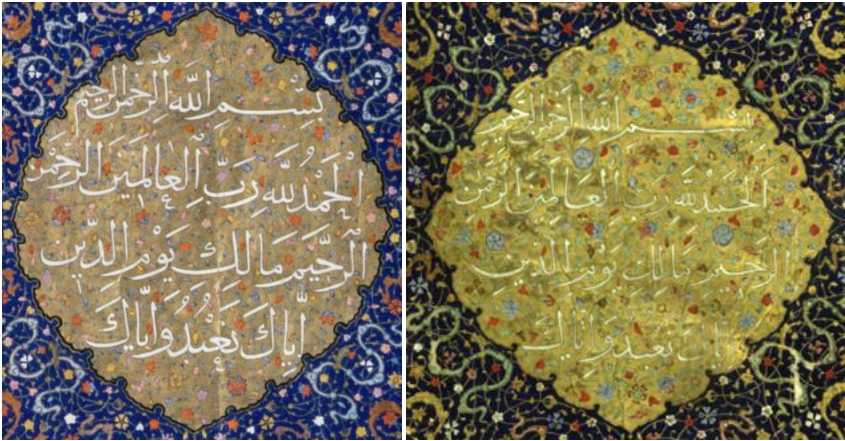 بِسْمِ اللَّهِ الرَّحْمَٰنِ الرَّحِيمِ
الْحَمْدُ لِلَّهِ رَبِّ الْعَالَمِينَ الرَّحْمَٰنِ
الرَّحِيمِ مَالِكِ يَوْمِ الدِّينِ
إِيَّاكَ نَعْبُدُ وَإِيَّاكَ
بِسْمِ اللَّهِ الرَّحْمَٰنِ الرَّحِيمِ
الْحَمْدُ لِلَّهِ رَبِّ الْعَالَمِينَ الرَّحْمَٰنِ
الرَّحِيمِ مَالِكِ يَوْمِ الدِّينِ
إِيَّاكَ نَعْبُدُ وَإِيَّاكَ